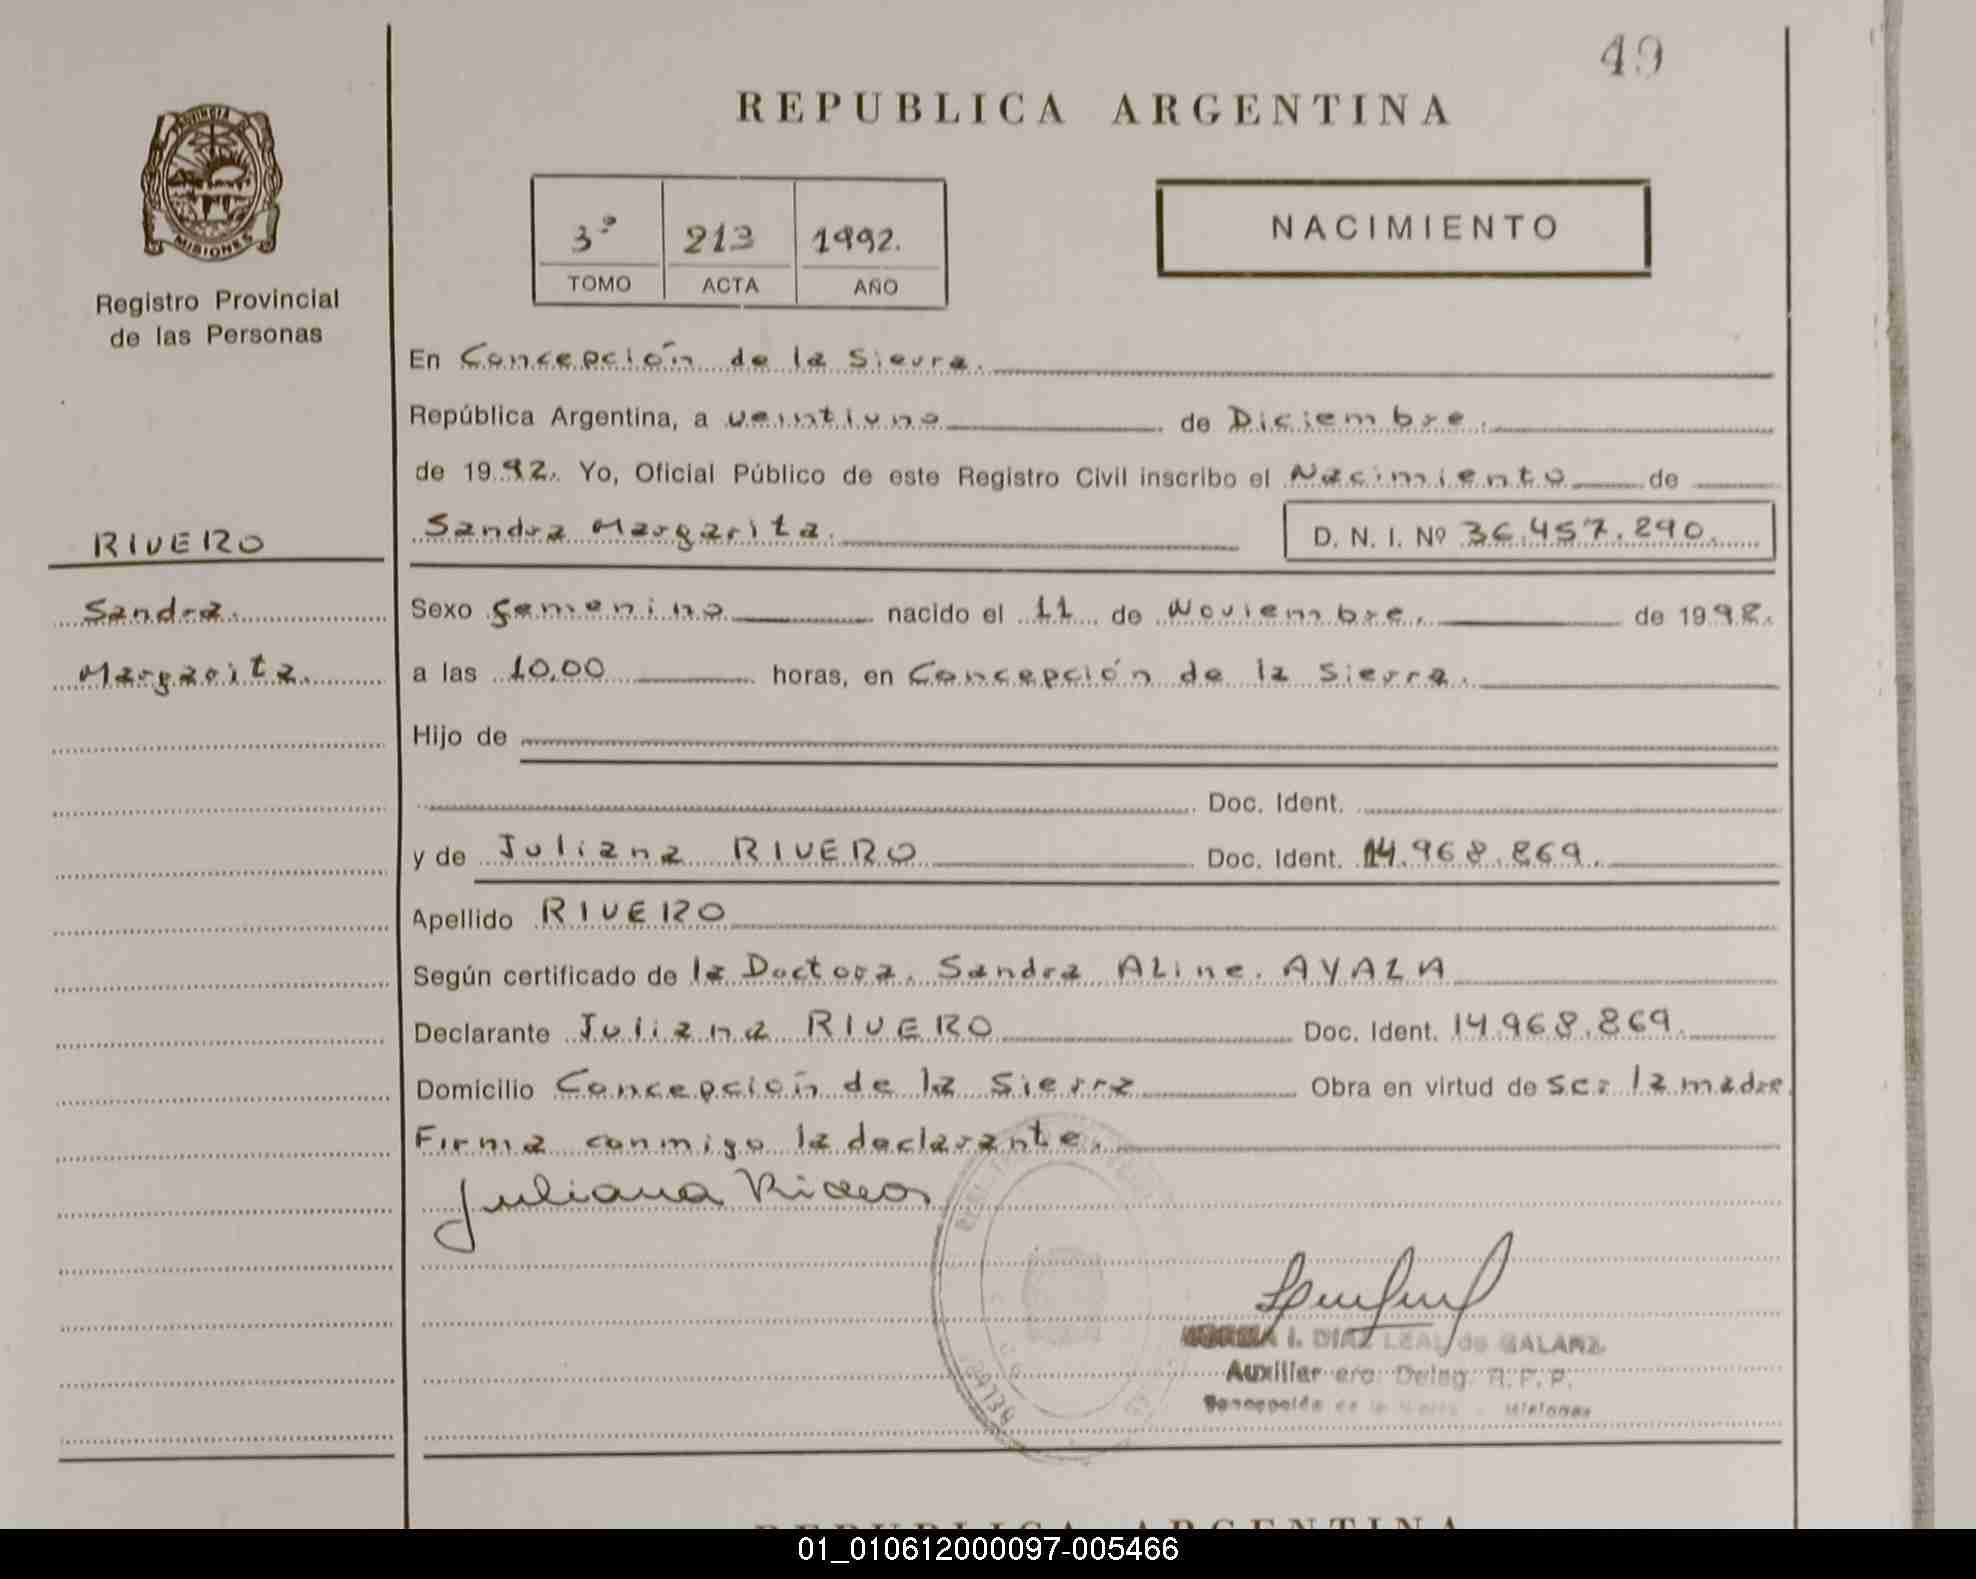 49
REPUBLICA ARGENTINA
PROVINCIA DE
MISIONES
Registro Provincial
de las Personas
3º 213 1992.
TOMO ACTA AÑO
NACIMIENTO
En Concepción de la Sierra.
República Argentina, a veintiuno de Diciembre.
de 19 92. Yo, Oficial Público de este Registro Civil inscribo el Nacimiento de
RIVERO
Sandra Margarita. D. N. I. Nº 36.457.290.
Sandra.
Sexo femenino nacido el 11 de Noviembre. de 19 92.
Margarita.
a las 10,00 horas, en Concepción de la Sierra.
Hijo de
Doc. Ident.
y de Juliana RIVERO Doc. Ident. 14.968.869.
Apellido RIVERO
Según certificado de la Doctora. Sandra ALine. AYALA
Declarante Juliana RIVERO Doc. Ident. 14.968.869.
Domicilio Concepción de la Sierra Obra en virtud de ser la madre.
Firma conmigo la declarante.
Juliana Rivero
I. DIAZ LEAL de GALARZ
Auxiliar Deleg. R. P. P.
Concepción de la Sierra - Misiones
REPUBLICA ARGENTINA
01_010612000097-005466